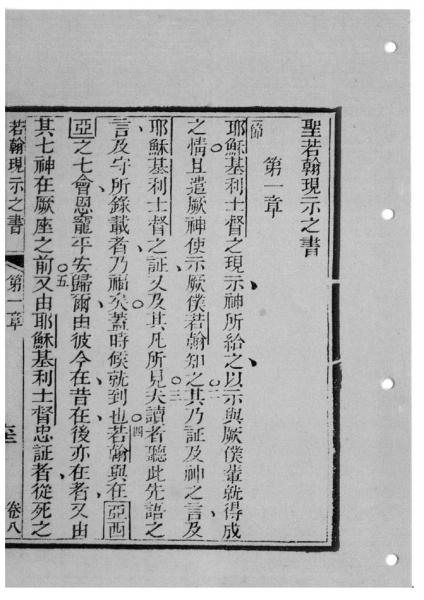 聖若翰現示之書
第一章
一節
耶穌基利士督之現示神所給之以示與厥僕輩就得成
二
之情且遣厥神使示厥僕若翰知之其乃証及神之言及
三
耶穌基利士督之証又及其凡所見夫讀者聽此先語之
四
言及守所錄載者乃福矣蓋時候就到也若翰與在亞西
亞之七會恩寵平安歸爾由彼今在昔在後亦在者又由
五
其七神在厥座之前又由耶穌基利士督忠証者從死之
若翰現示之書
第一章
卷八